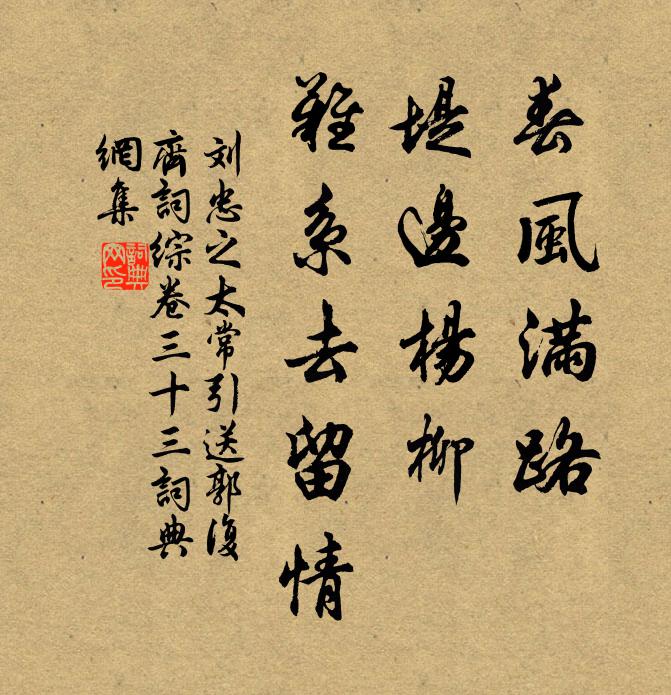 春風滿路
堤邊楊柳
難系去留情
刘忠之太常引送郭復
齋詞綜卷三十三詞典
網集
詞典網印